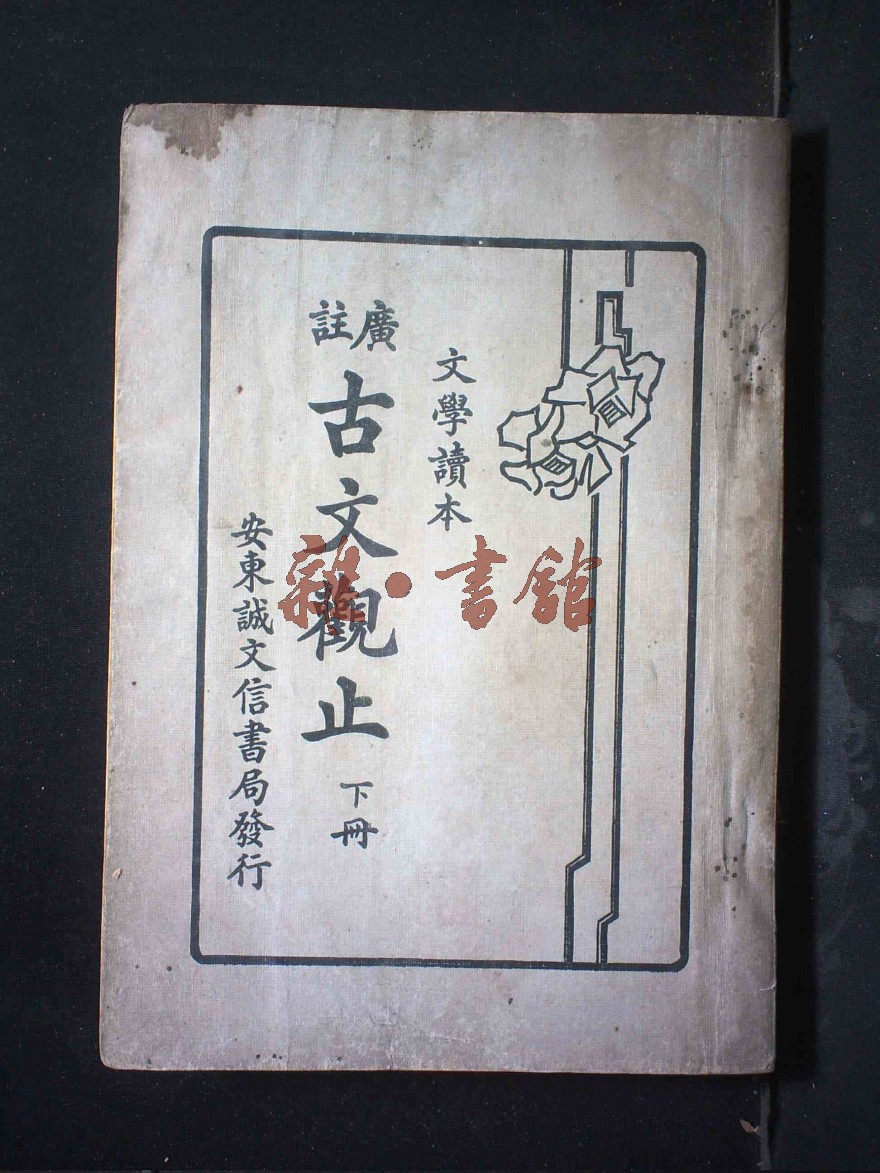 文學讀本
廣註
古文觀止
下冊
安東誠文信書局發行
雜·書館